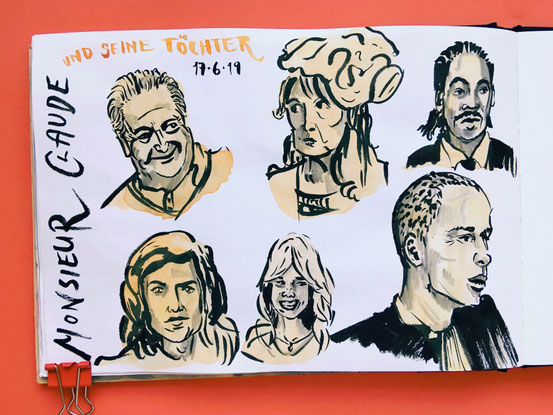 MONSIEUR CLAUDE
UND SEINE TÖCHTER
17.6.19